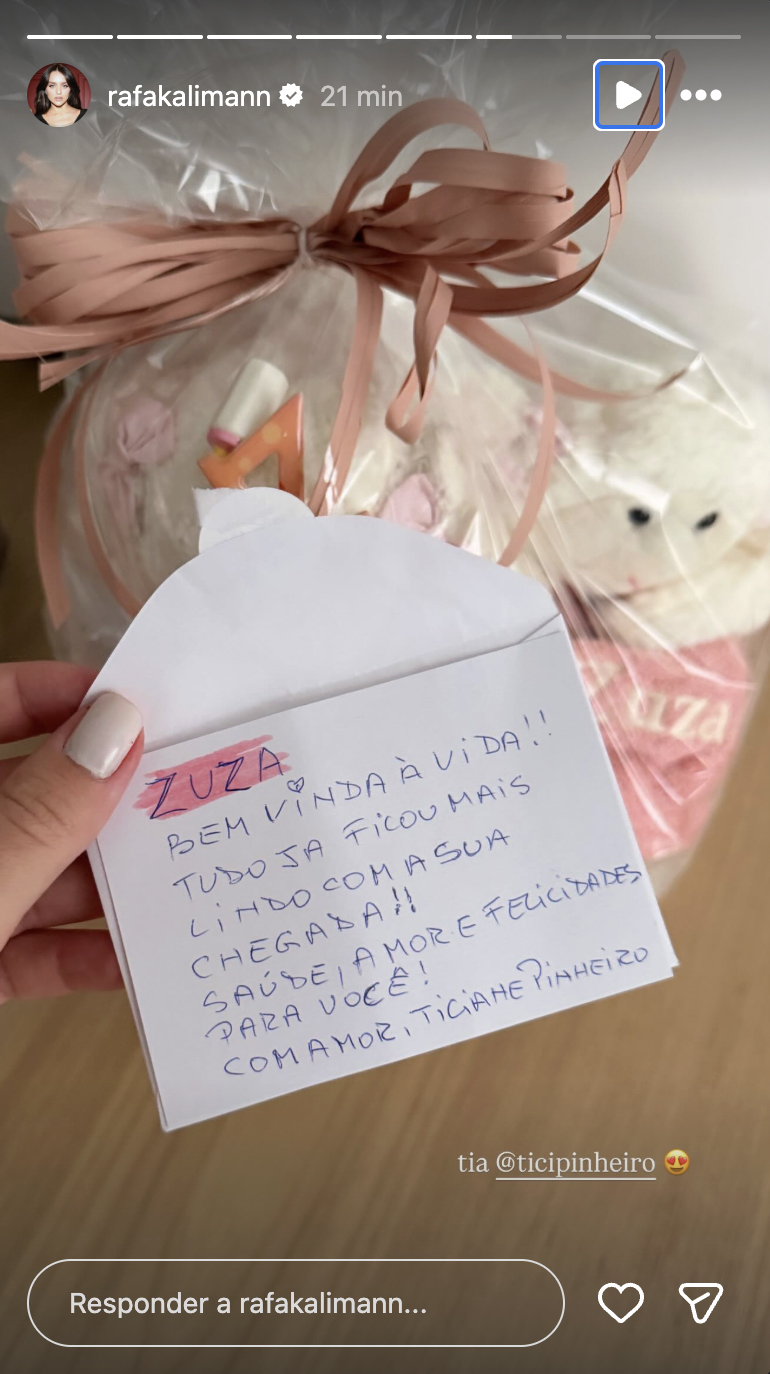 rafakalimann 21 min
ZUZA
BEM VINDA À VIDA!!
TUDO JA FICOU MAIS
LINDO COM A SUA
CHEGADA!!
SAÚDE, AMOR E FELICIDADES
PARA VOCÊ!
COM AMOR, TICIANE PINHEIRO
uza
tia @ticipinheiro 😍
Responder a rafakalimann...